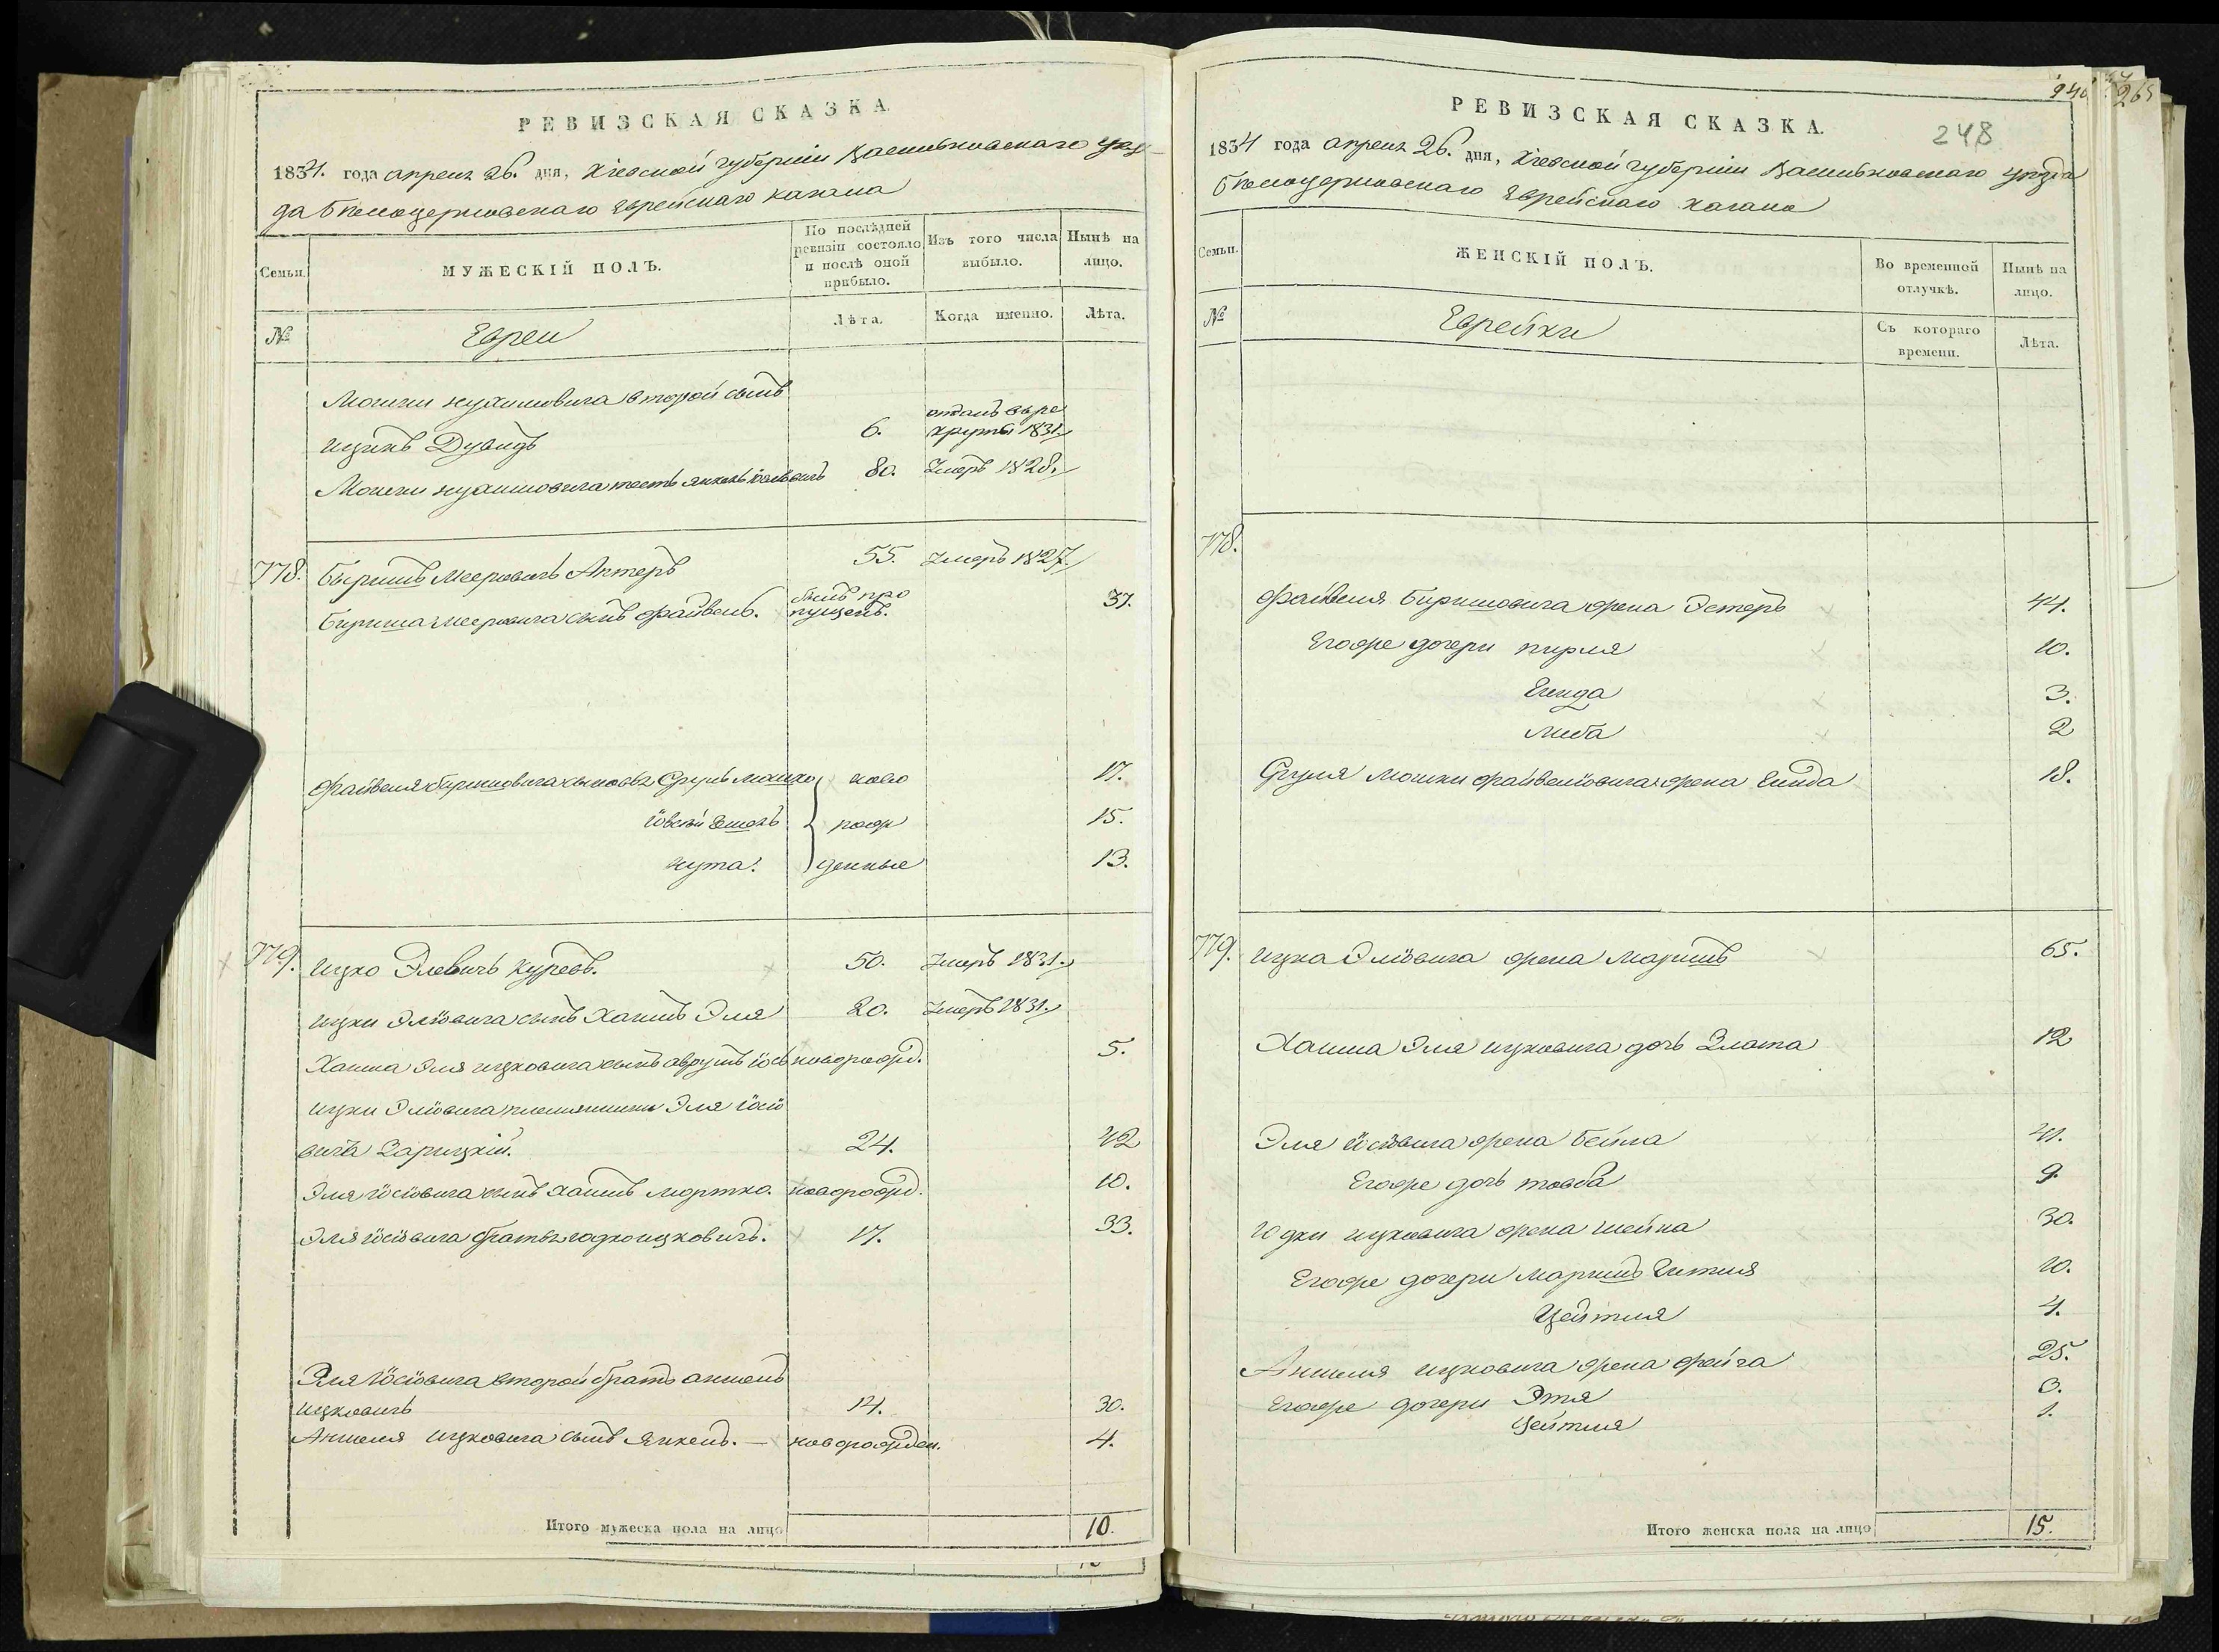 РЕВИЗСКАЯ СКАЗКА.
1834. года апреля 26. дня, Кіевской губерніи Васильковскаго уез-
да Белоцерковскаго Еврейскаго кагала
Семьи.
МУЖЕСКІЙ ПОЛЪ.
По послѣдней ревизіи состояло и послѣ оной прибыло.
Изъ того числа выбыло.
Нынѣ на лицо.
№
Евреи
Лѣта.
Когда именно.
Лѣта.
Мошки Нухимовича второй сынъ
Ицикъ Дувидъ 6. отданъ в ре
круты 1831.
Мошки Нухимовича тесть Янкель 80. Умеръ 1828.
778. Быришъ Мееровичъ Аптеръ 55. Умеръ 1827.
Бириша Мееровича сынъ Файвель. былъ про
пущенъ. 37.
Файвеля Биришовича сыновья Сруль Мошко ново 17.
15.
рож
Нута. денные 13.
779. Ицко Элевичъ Куревъ. 50. Умеръ 1831.
Ицки Эліовича сынъ Хаимъ Эля 20. Умеръ 1831.
Хаима Эля Ицковича сынъ Аврумъ Іось новорожд. 5.
Ицки Эліовича племянники Эля Іосіо
вичъ Зарицкій. 24. 42
Эля Іосіовича сынъ Хаимъ Мортко. новорожд. 10.
Эля Іосіовича братья Юдко Ицковичъ. 17. 33.
Эля Іосіовича второй братъ Аншель
Ицковичъ 14. 30.
Аншеля Ицковича сынъ Янкель. — новорожден. 4.
Итого мужеска пола на лицо 10.
940
265
248
РЕВИЗСКАЯ СКАЗКА.
1834 года апреля 26. дня, Кіевской губерніи Васильковскаго уезда
Белоцерковскаго Еврейскаго кагала
Семьи.
ЖЕНСКІЙ ПОЛЪ.
Во временной отлучкѣ.
Нынѣ на лицо.
№
Еврейки
Съ котораго времени.
Лѣта.
778.
Файвеля Биришовича жена Эстеръ 44.
Егоже дочери Пирля 10.
3.
Либа 2
Сруля Мошки Файвеліовича жена 18.
779. Ицка Эліовича жена Маришъ 65.
Хаима Эля Ицковича дочь Злата 12
Эля Іосіовича жена Бейла 41.
Егоже дочь Товба 9.
Юдки Ицковича жена Шейна 30.
Егоже дочери Маришъ Гитля 10.
Цейтля 4.
Аншеля Ицковича жена Фейга 25.
Егоже дочери Этя 3.
Цейтля 1.
Итого женска пола на лицо 15.